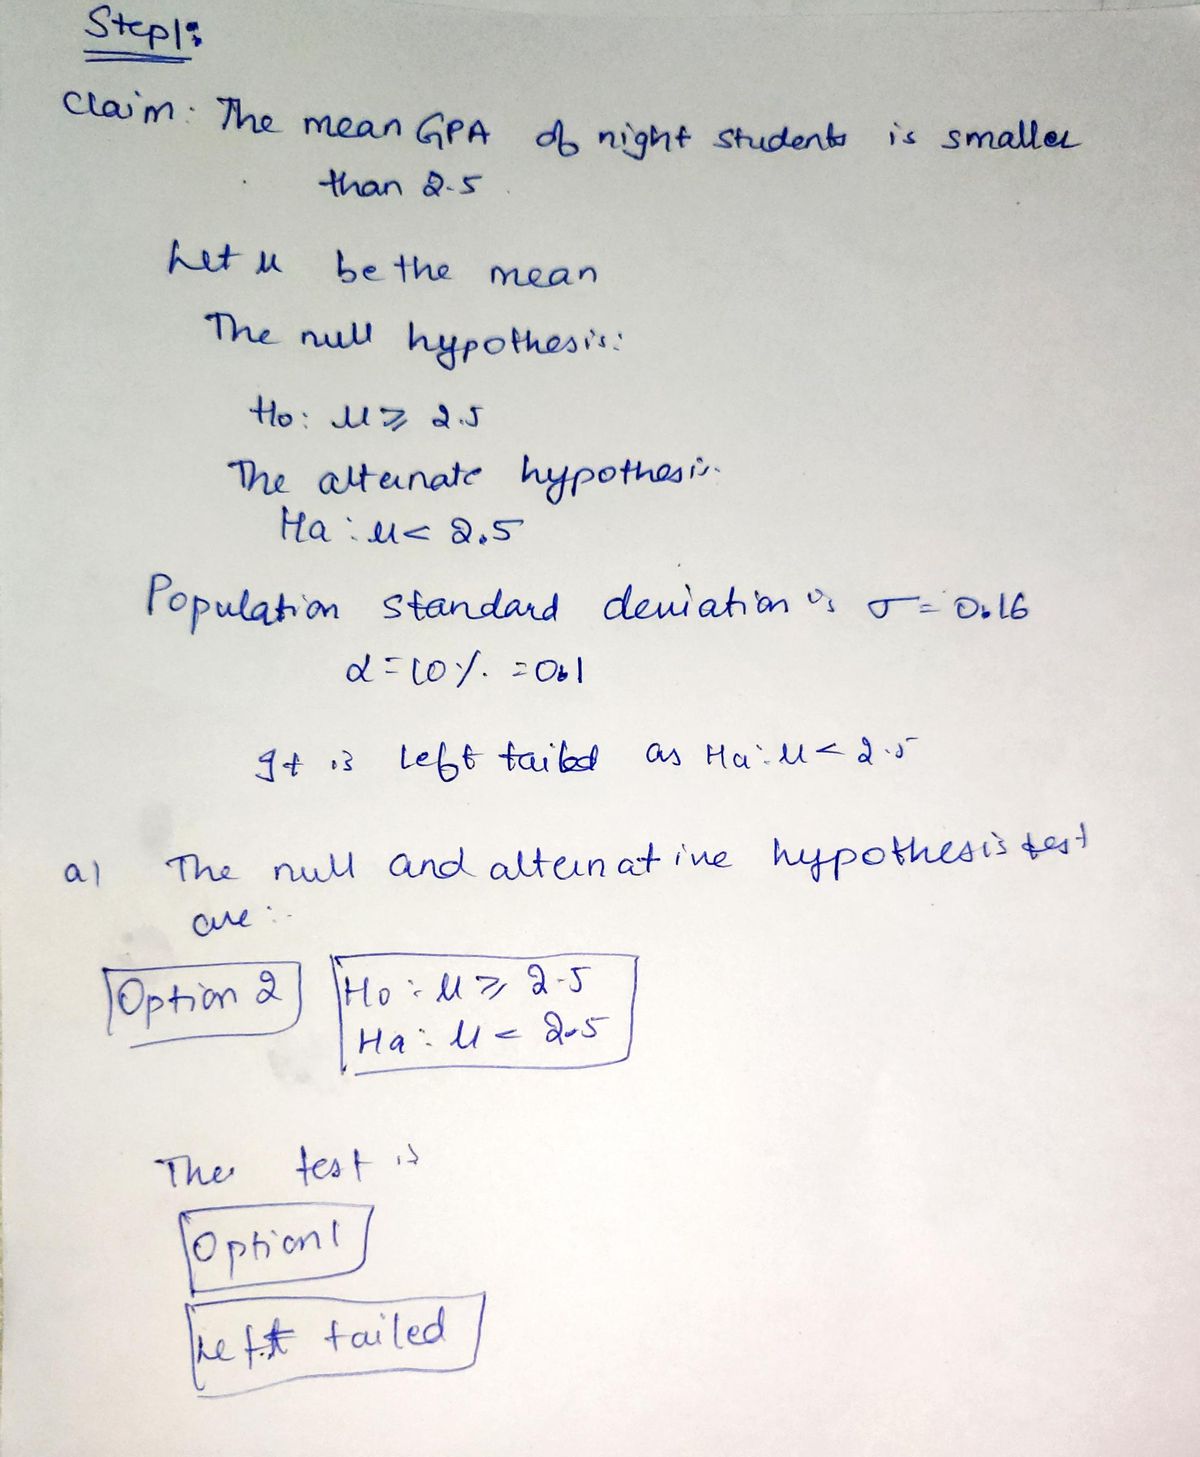 Step1:
Claim: The mean GPA of night students is smaller
than 2.5
Let μ be the mean
The null hypothesis:
Ho: μ ⩾ 2.5
The alternate hypothesis.
Ha: μ < 2.5
Population standard deviation is σ = 0.16
α = 10% = 0.1
It is left tailed as Ha: μ < 2.5
a) The null and alternative hypothesis test
are:
Option 2
Ho: μ ⩾ 2.5
Ha: μ < 2.5
The test is
Option 1
Left tailed